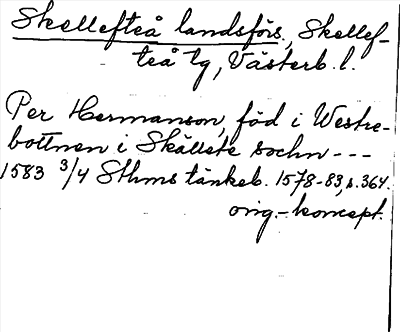 Skellefteå landsförs., Skellef-
teå tg, Västerb. l.
Per Hermanson, föd i Westre-
bottnen i Skällete sochn ---
1583 3/4 Sthms tänkeb. 1578-83, s. 364.
orig.-koncept.